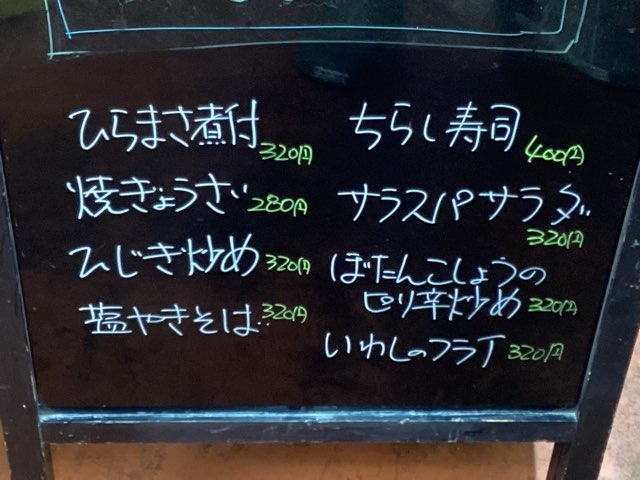 ひらまさ煮付 320円
焼ぎょうざ 280円
ひじき炒め 320円
塩やきそば 320円
ちらし寿司 400円
サラスパサラダ
320円
ぼたんこしょうの
ピリ辛炒め 320円
いわしのフライ 320円